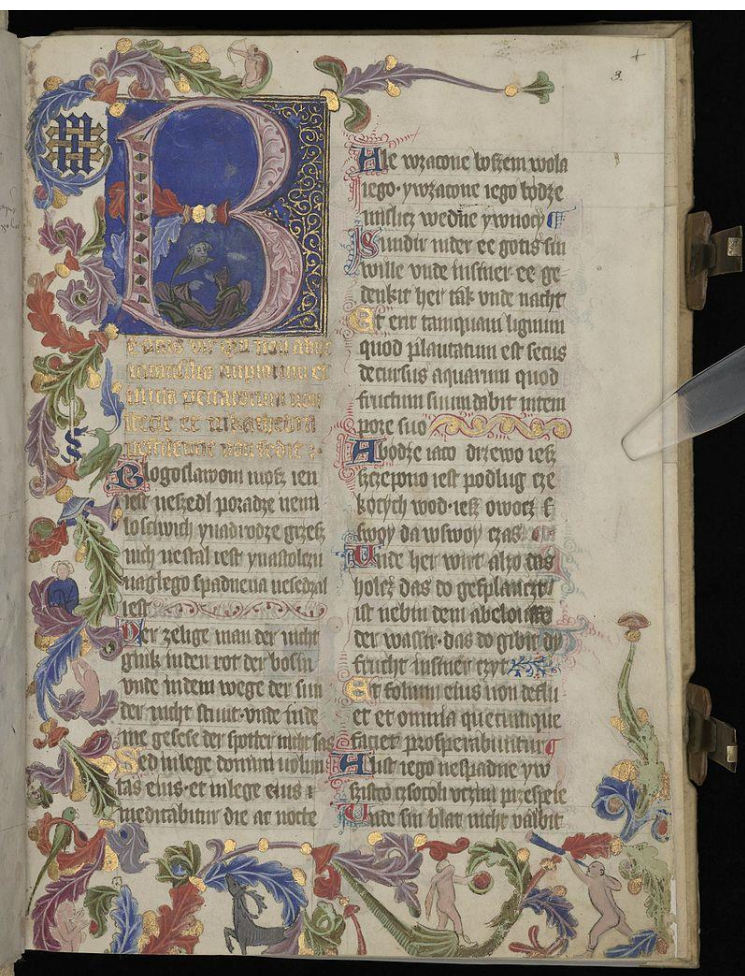 3
B
Blogoslawoni mosz ien
iest neszedl poradze nemi
losciwich ynadrodze grzesz
nich nestal iest ynastolczu
naglego spadnena nesedzal
iest
Der zelige man der nicht
gink inden rot der bosin
vnde indem wege der sun
der nicht stunt vnde inde
me gesese der spotler nicht sas
Sed inlege domini volun
tas eius et inlege eius
meditabitur die ac nocte
Ale wzacone boszem wola
iego ywzacone iego bodze
mislicz wedne ywnocy
Sundir inder ee gotis sin
wille vnde insiner ee ge
denkit her tak vnde nacht
Et erit tamquam lignum
quod plantatum est secus
decursus aquarum quod
fructum suum dabit intem
pore suo
Abodze iaco drzewo iesz
szczepono iest podlug cze
kocych wod iesz owocz
swoy da wswoy czas
Unde her wirt alzo das
holcz das do geplanczt
ist nebin dem abeloufe
der wassir das do gibit dy
frucht insiner czyt
Et folium eius non deflu
et et omnia quecumque
faciet prosperabuntur
A list iego nespadne yw
szistco czsocoli vczini przespeie
Unde sin blat nicht valbit